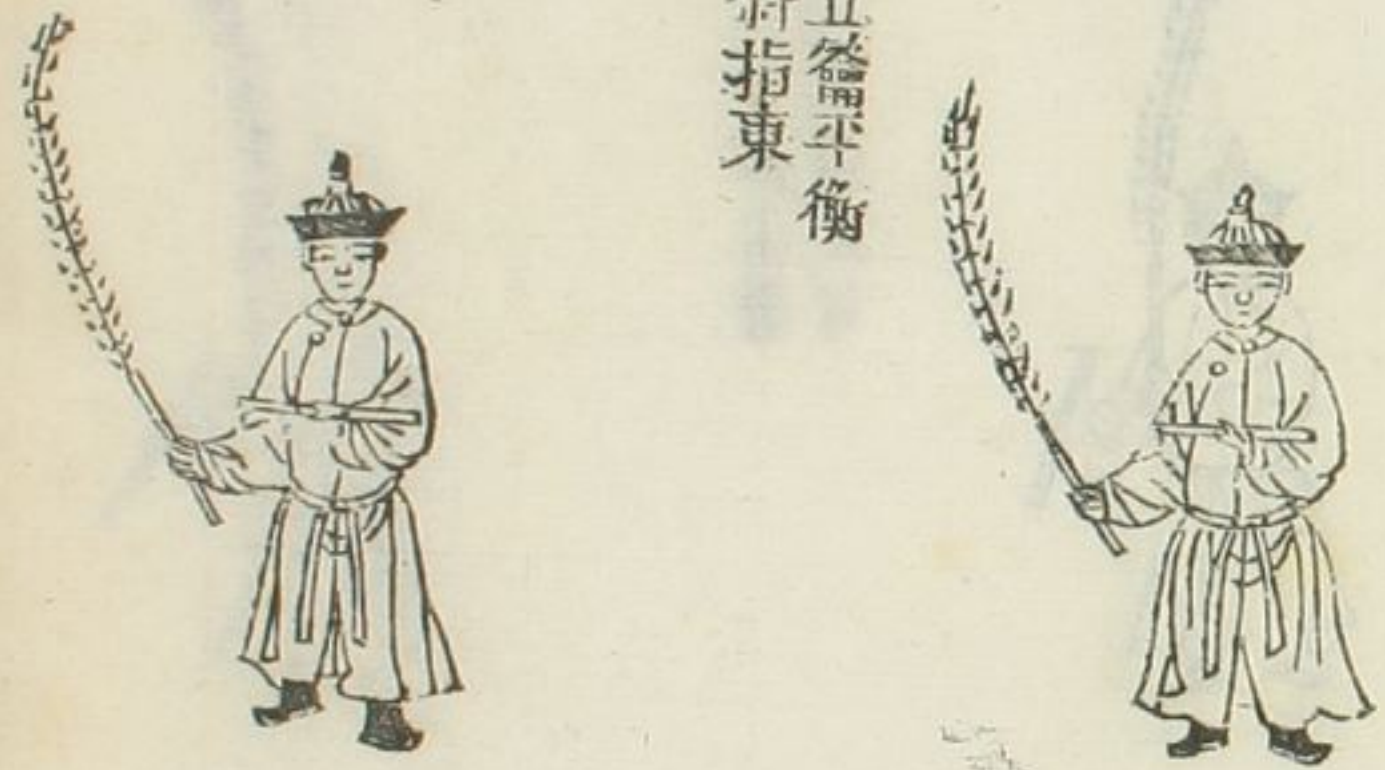 籥平衡
指東